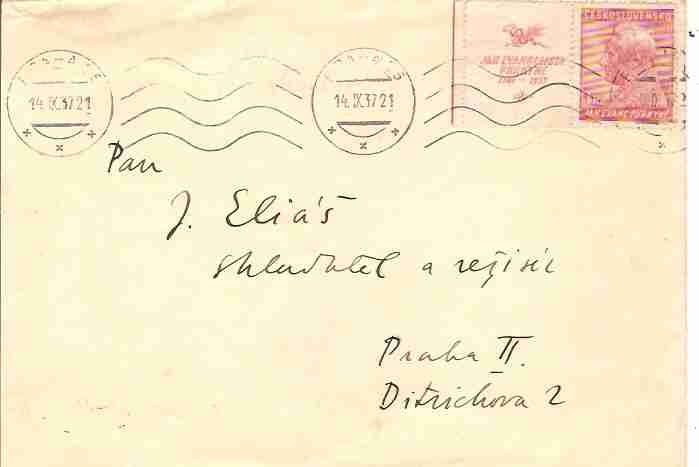 14.IX.37.21
14.IX.37.21
JAN EVANGELISTA
PURKYNĚ
1787 - 1937
ČESKOSLOVENSKO
JAN EV. PURKYNĚ
Pan
J. Eliáš
skladatel a režisér
Praha II.
Ditrichova 2